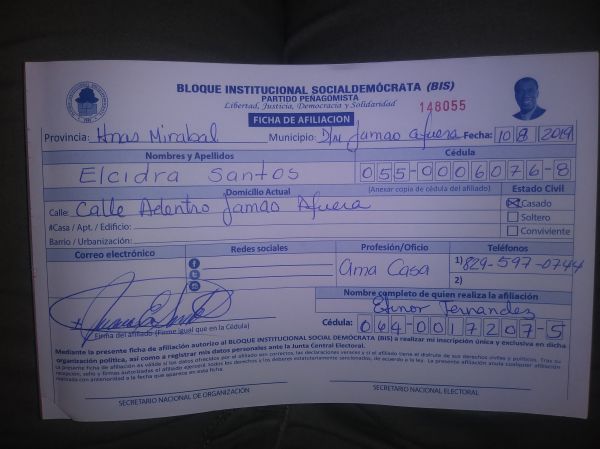 BLOQUE INSTITUCIONAL SOCIALDEMÓCRATA (BIS)
PARTIDO PEÑAGOMISTA
Libertad, Justicia, Democracia y Solidaridad
148055
FICHA DE AFILIACION
Provincia: Hnas Mirabal Municipio: D/M Jamao Afuera Fecha: 10/8/2019
Nombres y Apellidos Cédula
Elcidra Santos 055-0006076-8
Domicilio Actual (Anexar copia de cédula del afiliado) Estado Civil
Calle: Calle Adentro Jamao Afuera Casado
#Casa / Apt. / Edificio: Soltero
Barrio / Urbanización: Conviviente
Correo electrónico Redes sociales Profesión/Oficio Teléfonos
Ama Casa 1) 829-597-0744
2)
Nombre completo de quien realiza la afiliación
Fernandez
Firma del afiliado (Firme igual que en la Cédula) Cédula: 064-0017207-5
Mediante la presente ficha de afiliación autorizo al BLOQUE INSTITUCIONAL SOCIAL DEMÓCRATA (BIS) a realizar mi inscripción única y exclusiva en dicha
organización política, así como a registrar mis datos personales ante la Junta Central Electoral.
SECRETARIO NACIONAL DE ORGANIZACIÓN SECRETARIO NACIONAL ELECTORAL